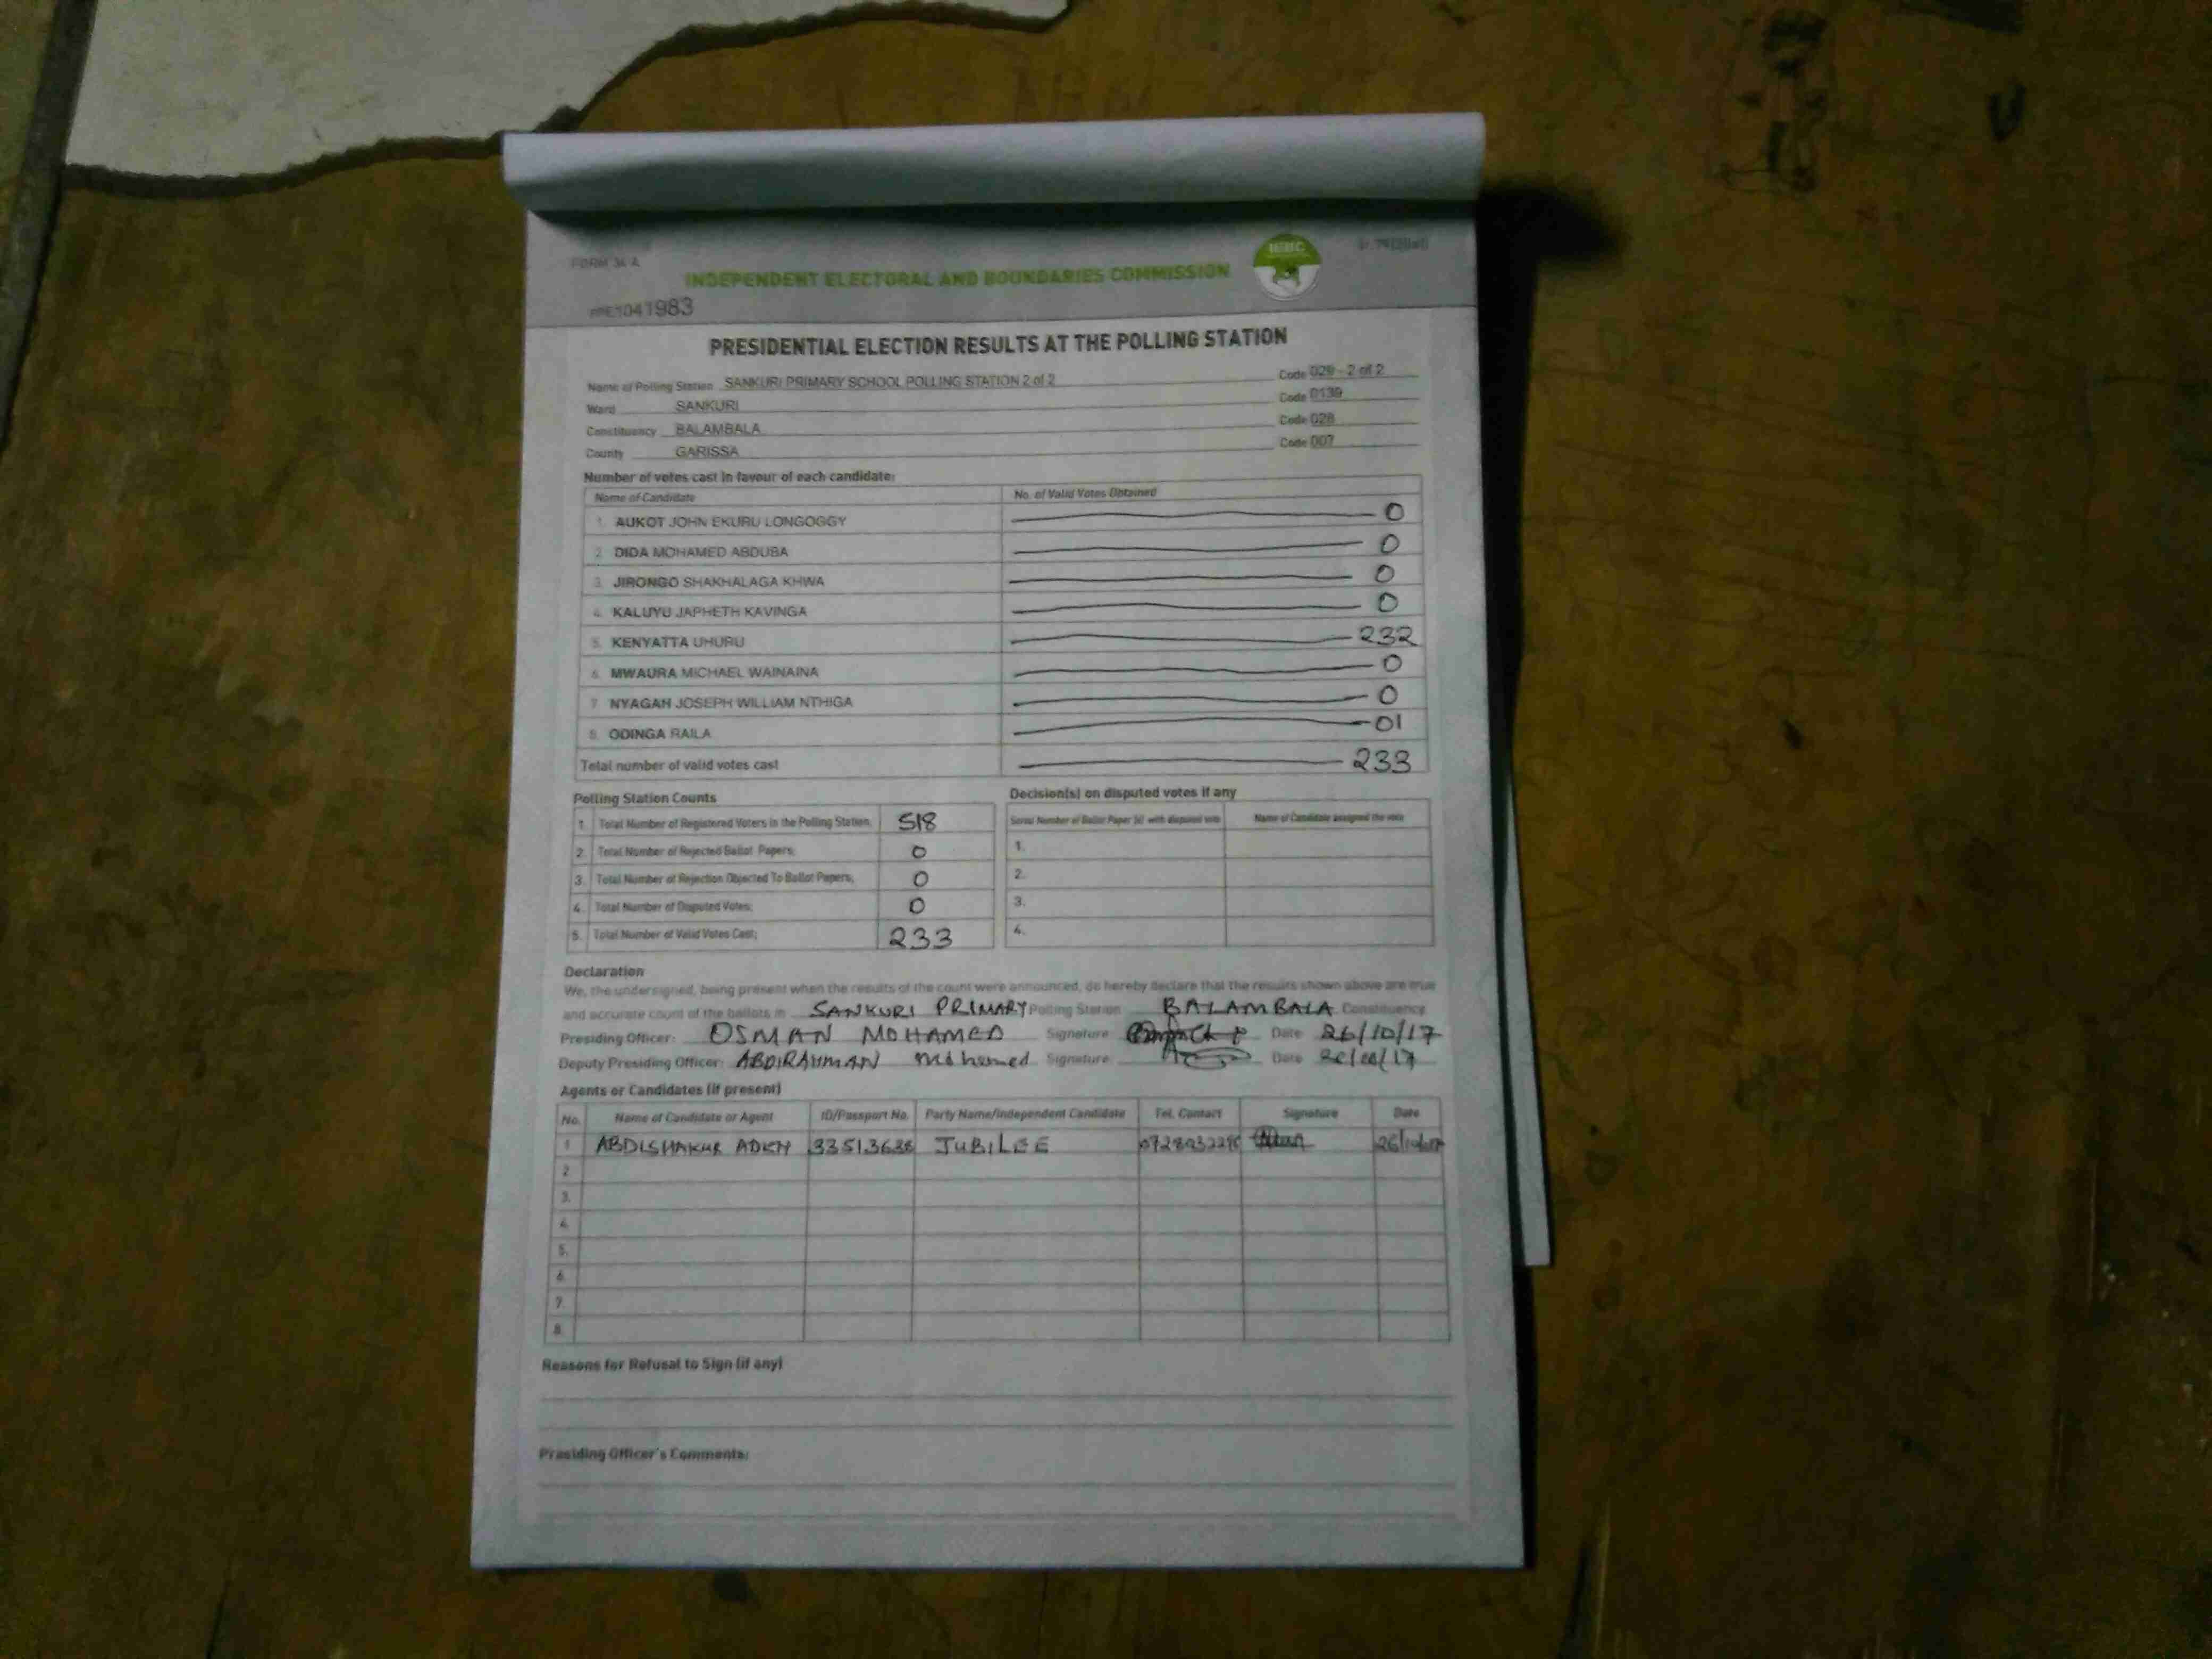 FORM 34 A
INDEPENDENT ELECTORAL AND BOUNDARIES COMMISSION
IEBC
1041983
PRESIDENTIAL ELECTION RESULTS AT THE POLLING STATION
Name of Polling Station SANKURI PRIMARY SCHOOL POLLING STATION 2 of 2 Code 029 - 2 of 2
Ward SANKURI Code 0139
Constituency BALAMBALA Code 028
County GARISSA Code 007
Number of votes cast in favour of each candidate:
Name of Candidate No. of Valid Votes Obtained
1. AUKOT JOHN EKURU LONGOGGY 0
2. DIDA MOHAMED ABDUBA 0
3. JIRONGO SHAKHALAGA KHWA 0
4. KALUYU JAPHETH KAVINGA 0
5. KENYATTA UHURU 232
6. MWAURA MICHAEL WAINAINA 0
7. NYAGAH JOSEPH WILLIAM NTHIGA 0
8. ODINGA RAILA 01
Total number of valid votes cast 233
Polling Station Counts
1. Total Number of Registered Voters in the Polling Station; 518
2. Total Number of Rejected Ballot Papers; 0
3. Total Number of Rejection Objected To Ballot Papers; 0
4. Total Number of Disputed Votes; 0
5. Total Number of Valid Votes Cast; 233
Decision(s) on disputed votes if any
Serial Number of Ballot Paper (s) with disputed vote Name of Candidate assigned the vote
1.
2.
3.
4.
Declaration
We, the undersigned, being present when the results of the count were announced, do hereby declare that the results shown above are true
and accurate count of the ballots in SANKURI PRIMARY Polling Station BALAMBALA Constituency
Presiding Officer: OSMAN MOHAMED Signature Date 26/10/17
Deputy Presiding Officer: ABDIRAHMAN Mohamed Signature Date
Agents or Candidates (if present)
No. Name of Candidate or Agent ID/Passport No. Party Name/Independent Candidate Tel. Contact Signature Date
1 ABDISHAKUR ADEN JUBILEE
2.
3.
4.
5.
6.
7.
8.
Reasons for Refusal to Sign (if any)
Presiding Officer's Comments: